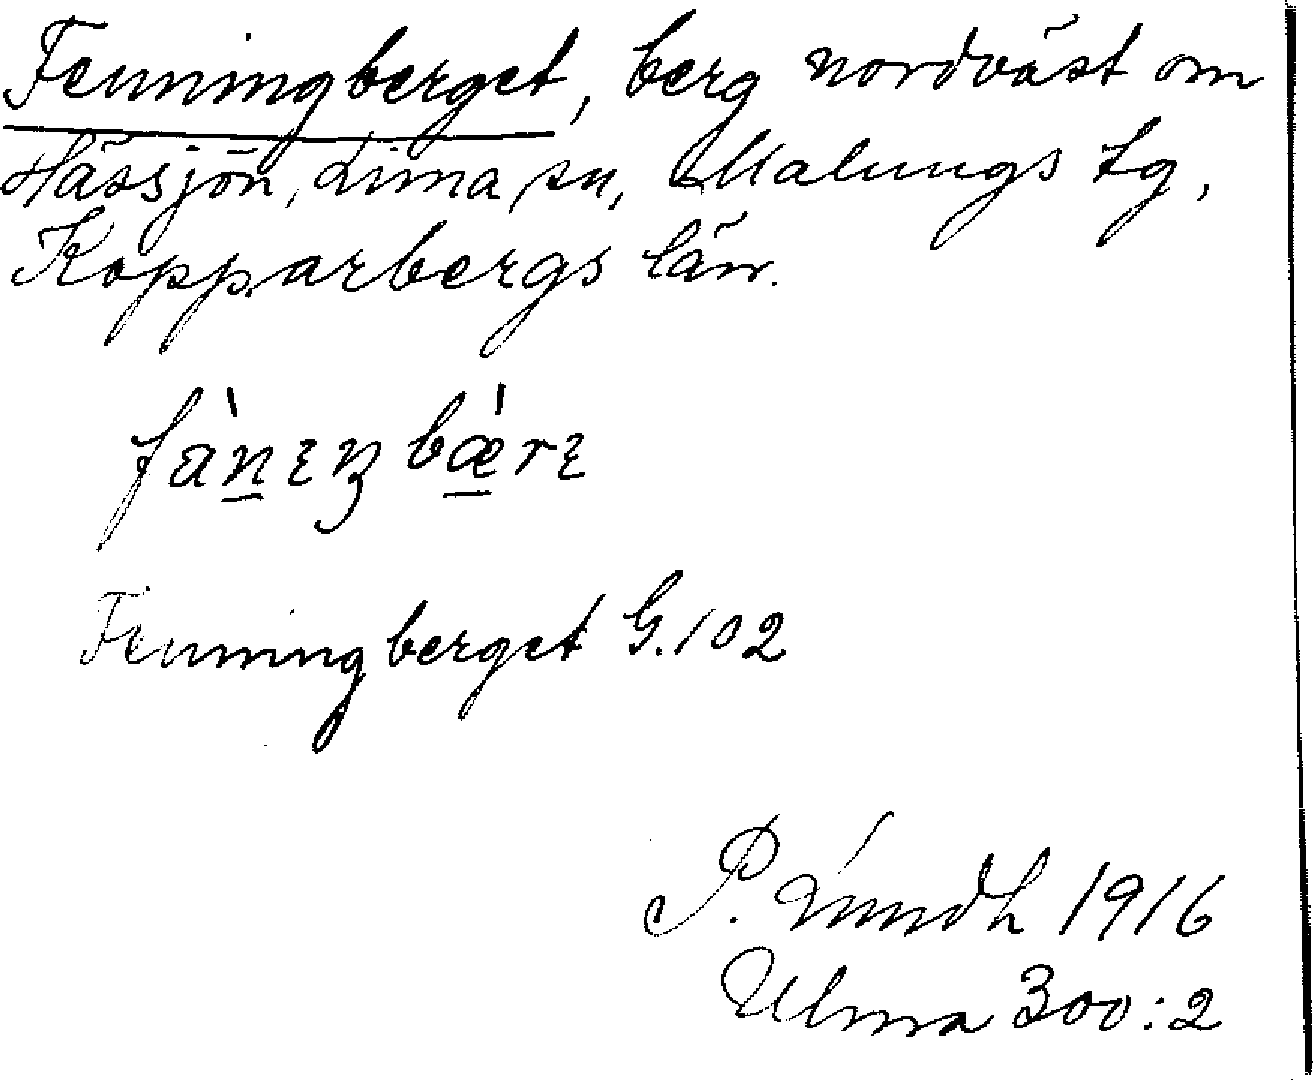 Fenningberget, berg nordväst om
Hässjön, Lima sn, Malungs tg,
Kopparbergs län.
Fenningberget G.102
P. Lundh 1916
Ulma 300:2